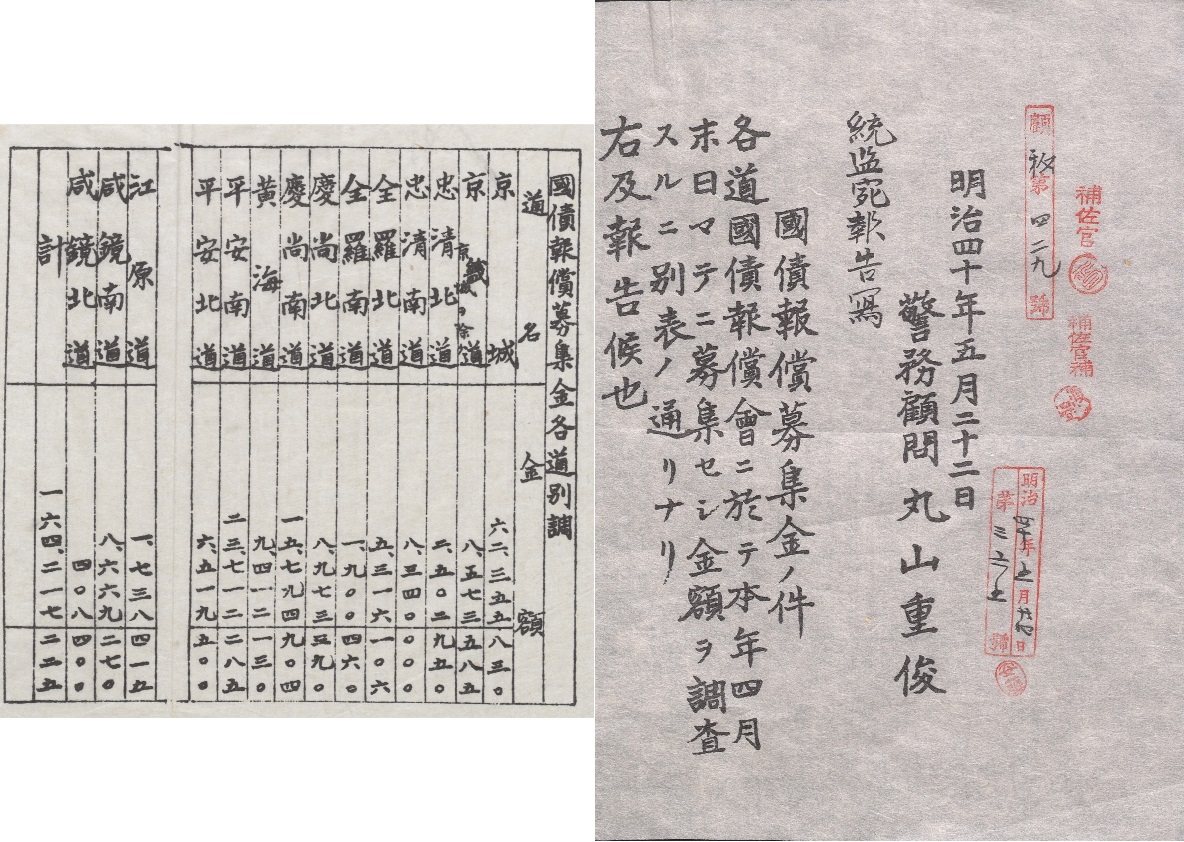 補佐官
補佐官補
顧秘第四二九號
明治四十年五月廿四日
明治四十年五月二十二日
警務顧問 丸山重俊
統監宛報告寫
國債報償募集金ノ件
各道國債報償會ニ於テ本年四月
末日マテニ募集セシ金額ヲ調査
スルニ別表ノ通リナリ
右及報告候也
國債報償募集金各道別調
道名 金額
京城 六二、三五五 八三〇
京畿道 京城ヲ除 八、五七三 五八五
忠清北道 二、五〇二 九五〇
忠清南道 八、三四〇 〇〇〇
全羅北道 五、三一六 一〇六
全羅南道 一、九〇〇 四六〇
慶尚北道 八、九七三 三九〇
慶尚南道 一五、七九四 九〇四
黄海道 九、四一二 一三〇
平安南道 二三、七一二 二八五
平安北道 六、五一九 五〇〇
江原道 一、七三八 四一五
咸鏡南道 八、六六九 二七〇
咸鏡北道 四〇八 四〇〇
計 一六四、二一七 二二五